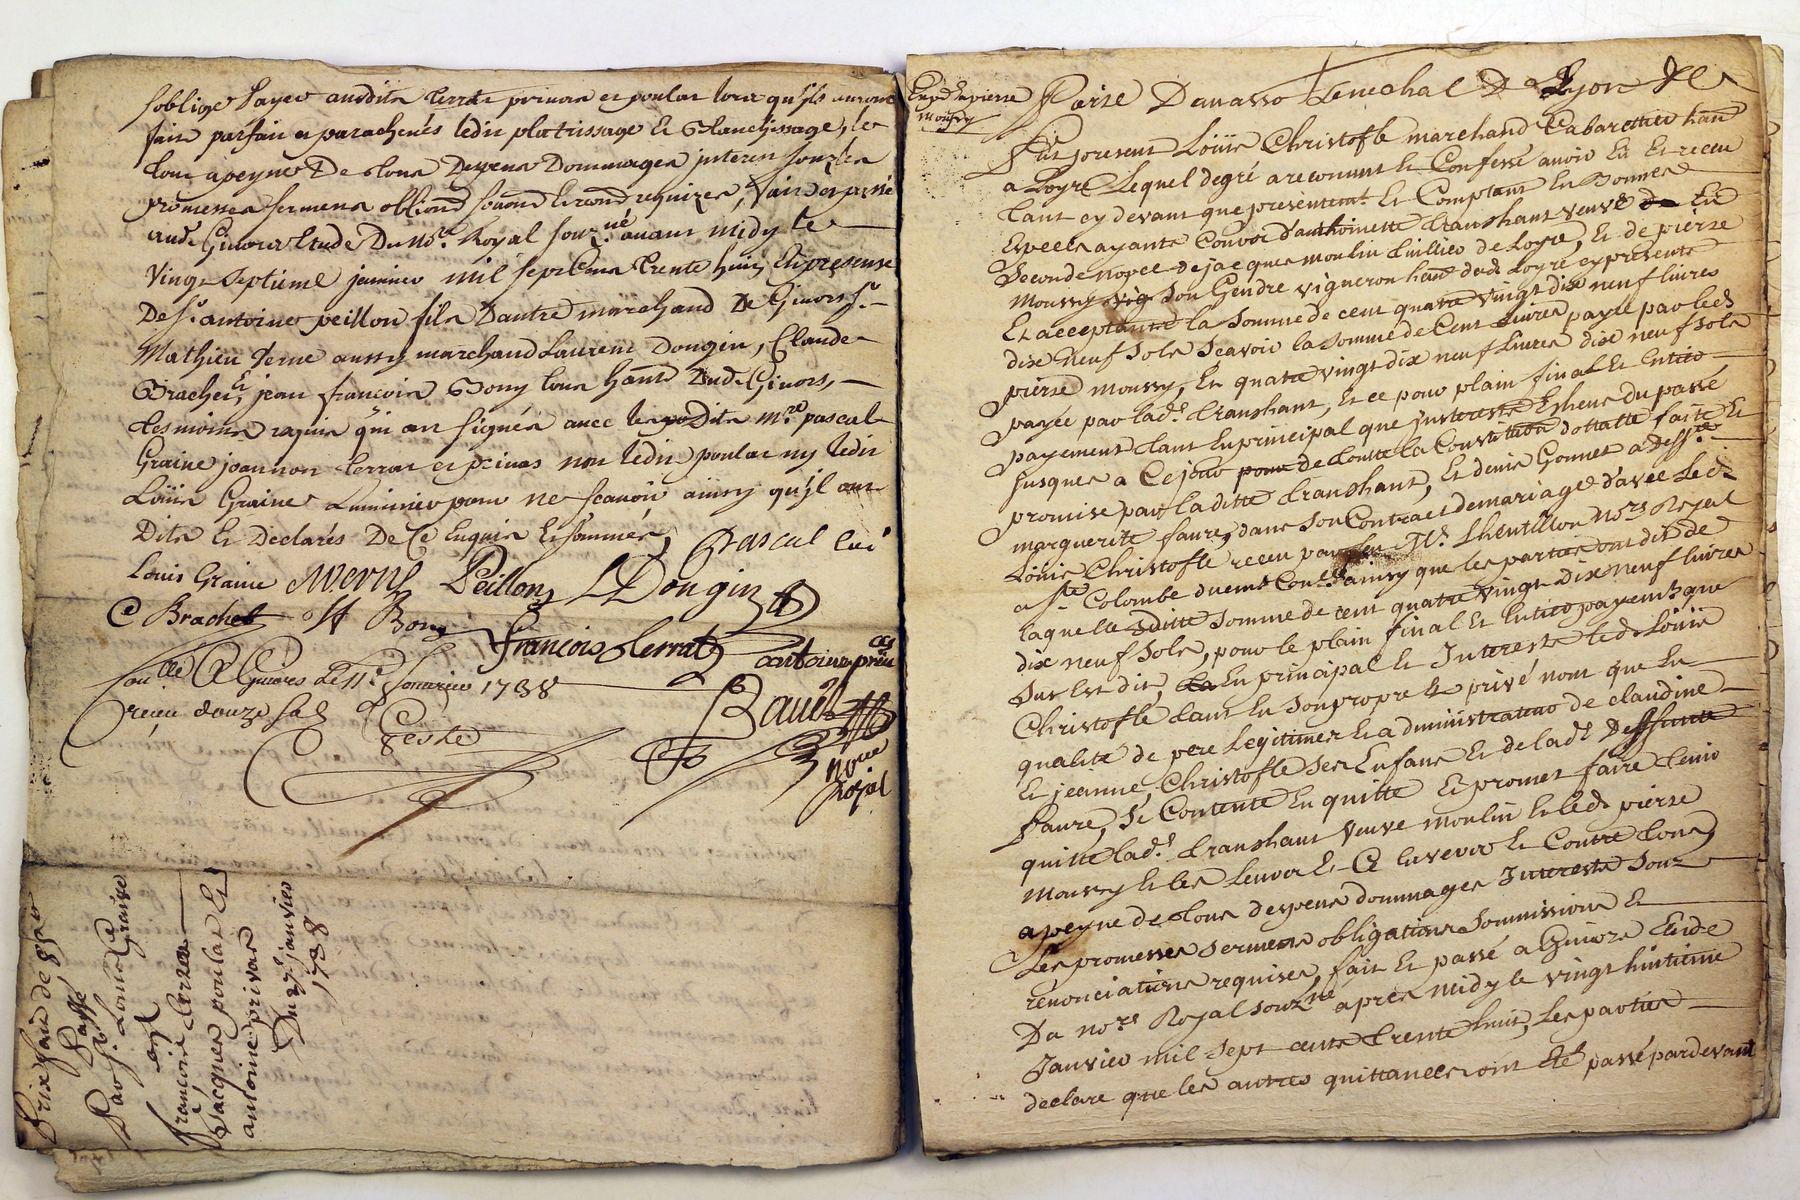 soblige payer ausdits terrat privas et poulat lors qu'ils auront
fait parfait et parachevés ledit platrissage et Blanchissage, le
tout apeyne De tous Depens Dommages jnterets souz les
promesses sermens obligõns renonõns requizes, fait et passé
aud. Givors Etude Du nore. Royal souz.né avant midy le
vingt septieme janvier mil sept Cens trente huit En presense
De sr. antoine peillon fils Dautre marchand De Givors sr.
Mathieu Verne aussy marchand Laurent Dongin, Claude
Brachet, jean françois Bony tous habts Dud. Givors,
tesmoins requis qui ont signés avec lesdits mre. pascal
Graine joannon terrat et privas non ledit poulat ny ledit
Loüis Graine Luminier pour ne sçavoir ainsy qu'jl ont
Dits Et Declarés De Ce Enquis Et sommés,
Pascal curé
Louis Graine M Verne Peillon L Dongin
C Brachet Bony
françois terrat antoine privas
Conllé A Givors le janvier 1738
reçeu douze sols
Geste
Bauet
nore
Royal
Prixfait de 85lt
Passé
Par sr. Louis Graine
a
françois terra
Jacques poulat Et
antoine privas
Du 27e janvier
1738
Exped a pierre
moussy
Parde Davasso Senechal De Lyon &c
Fut present Loüis Christofle marchand Cabarettier hant
a Loyre Lequel degré a reconnut Et Confessé avoir Eu Et receu
tant cy devant que presentemt. Et Comptant En Bonnes
Especes ayants Cours d'anthoinette tranchant veuve En
Seconde nopce de jacques moulin tuillier de Loyre, Et de pierre
moussy son Gendre vigneron hant. dud. Loyre cy presents
Et acceptants la somme de cent quatre vingt dix neuf livres
dix neuf sols sçavoir la somme de Cent livres payée par led.
pierre moussy, Et quatre vingt dix neuf Livres dix neuf sols
payée par lad. tranchant, Et ce pour plain final Et Entier
payement tant En principal que jnterests Esheus du passé
jusques a Cejour de toutte la Constitution dottalle faitte Et
promise par laditte tranchant, Et denis Gonnet a deff.te
marguerite faure, dans son Contract de mariage d'avec Led.
Loüis Christofle receu par Me. Lhentillon nore. Royal
a ste. Colombe duemt. Conllé ainsy que les parties ont dit de
laquelle ditte somme de cent quatre vingt dix neuf livres
dix neuf sols, pour le plain final Et Entier payemt. que
Sus Est dit, En principal Et Interests led. Loüis
Christofle tant En son propre Et privé nom que En
qualité de pere Legitime Et administrateur de claudine
Et jeanne Christofle ses Enfans Et de lad. Deffunte
faure, se Contente En quitte Et promet faire tenir
quitte lad. tranchant veuve moulin Et led. pierre
moussy Et les Leurs Et Ce Envers Et Contre tous
apeyne de tous depens dommages Interests Souz
Les promesses sermens obligations Sommissions Et
renonciations requises, fait Et passé a Givors Etude
Du nore. Royal souz.né apres midy le vingt huitieme
Janvier mil sept cents trente huit, Les parties
declare que les autres quittances ont Eté passé pardevant